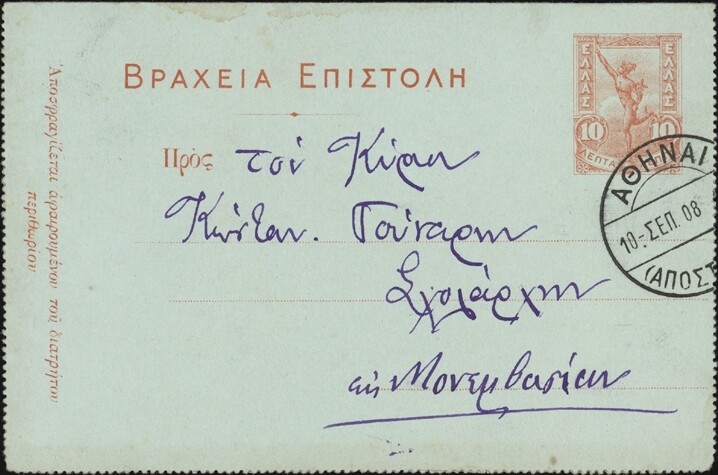 ΒΡΑΧΕΙΑ ΕΠΙΣΤΟΛΗ
ΕΛΛΑΣ
ΕΛΛΑΣ
10
10
ΛΕΠΤΑ
Πρὸς τὸν Κύριον
Κωνσταν. Γούναρην
Σχολάρχην
εἰς Μονεμβασίαν
ΑΘΗΝΑΙ
10-ΣΕΠ. 08
(ΑΠΟΣΤ
Ἀποσφραγίζεται ἀφαιρουμένου τοῦ διατρήτου
περιθωρίου